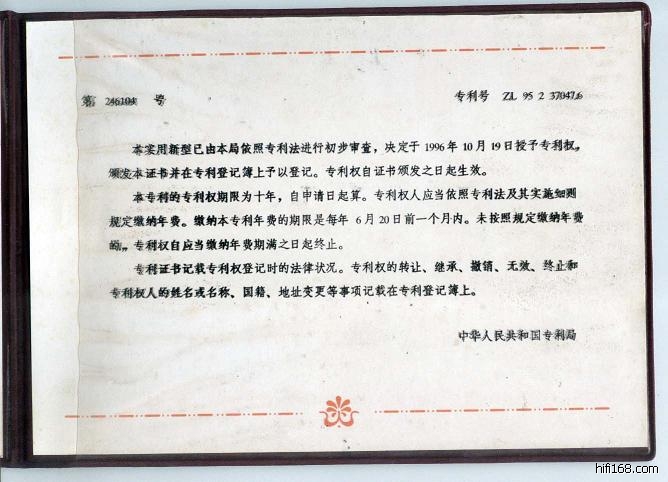 第 246104 号
专利号 ZL 95 2 37047.6
本实用新型已由本局依照专利法进行初步审查，决定于1996年10月19日授予专利权，
颁发本证书并在专利登记簿上予以登记。专利权自证书颁发之日起生效。
本专利的专利权期限为十年，自申请日起算。专利权人应当依照专利法及其实施细则
规定缴纳年费。缴纳本专利年费的期限是每年 6月20日前一个月内。未按照规定缴纳年费
的，专利权自应当缴纳年费期满之日起终止。
专利证书记载专利权登记时的法律状况。专利权的转让、继承、撤销、无效、终止和
专利权人的姓名或名称、国籍、地址变更等事项记载在专利登记簿上。
中华人民共和国专利局
hifi168.com